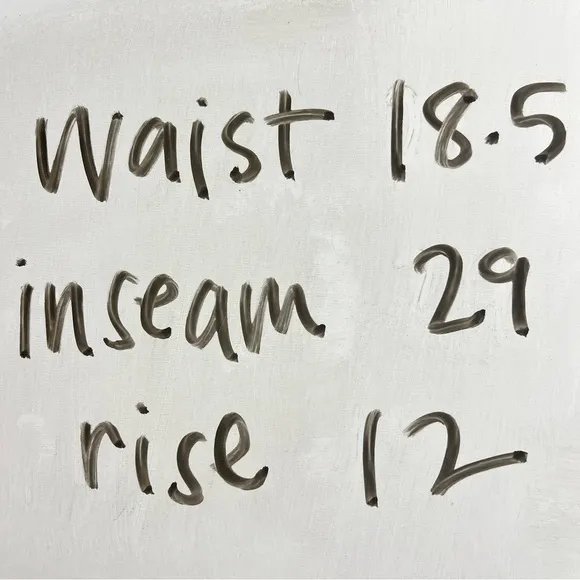 Waist 18.5
inseam 29
rise 12